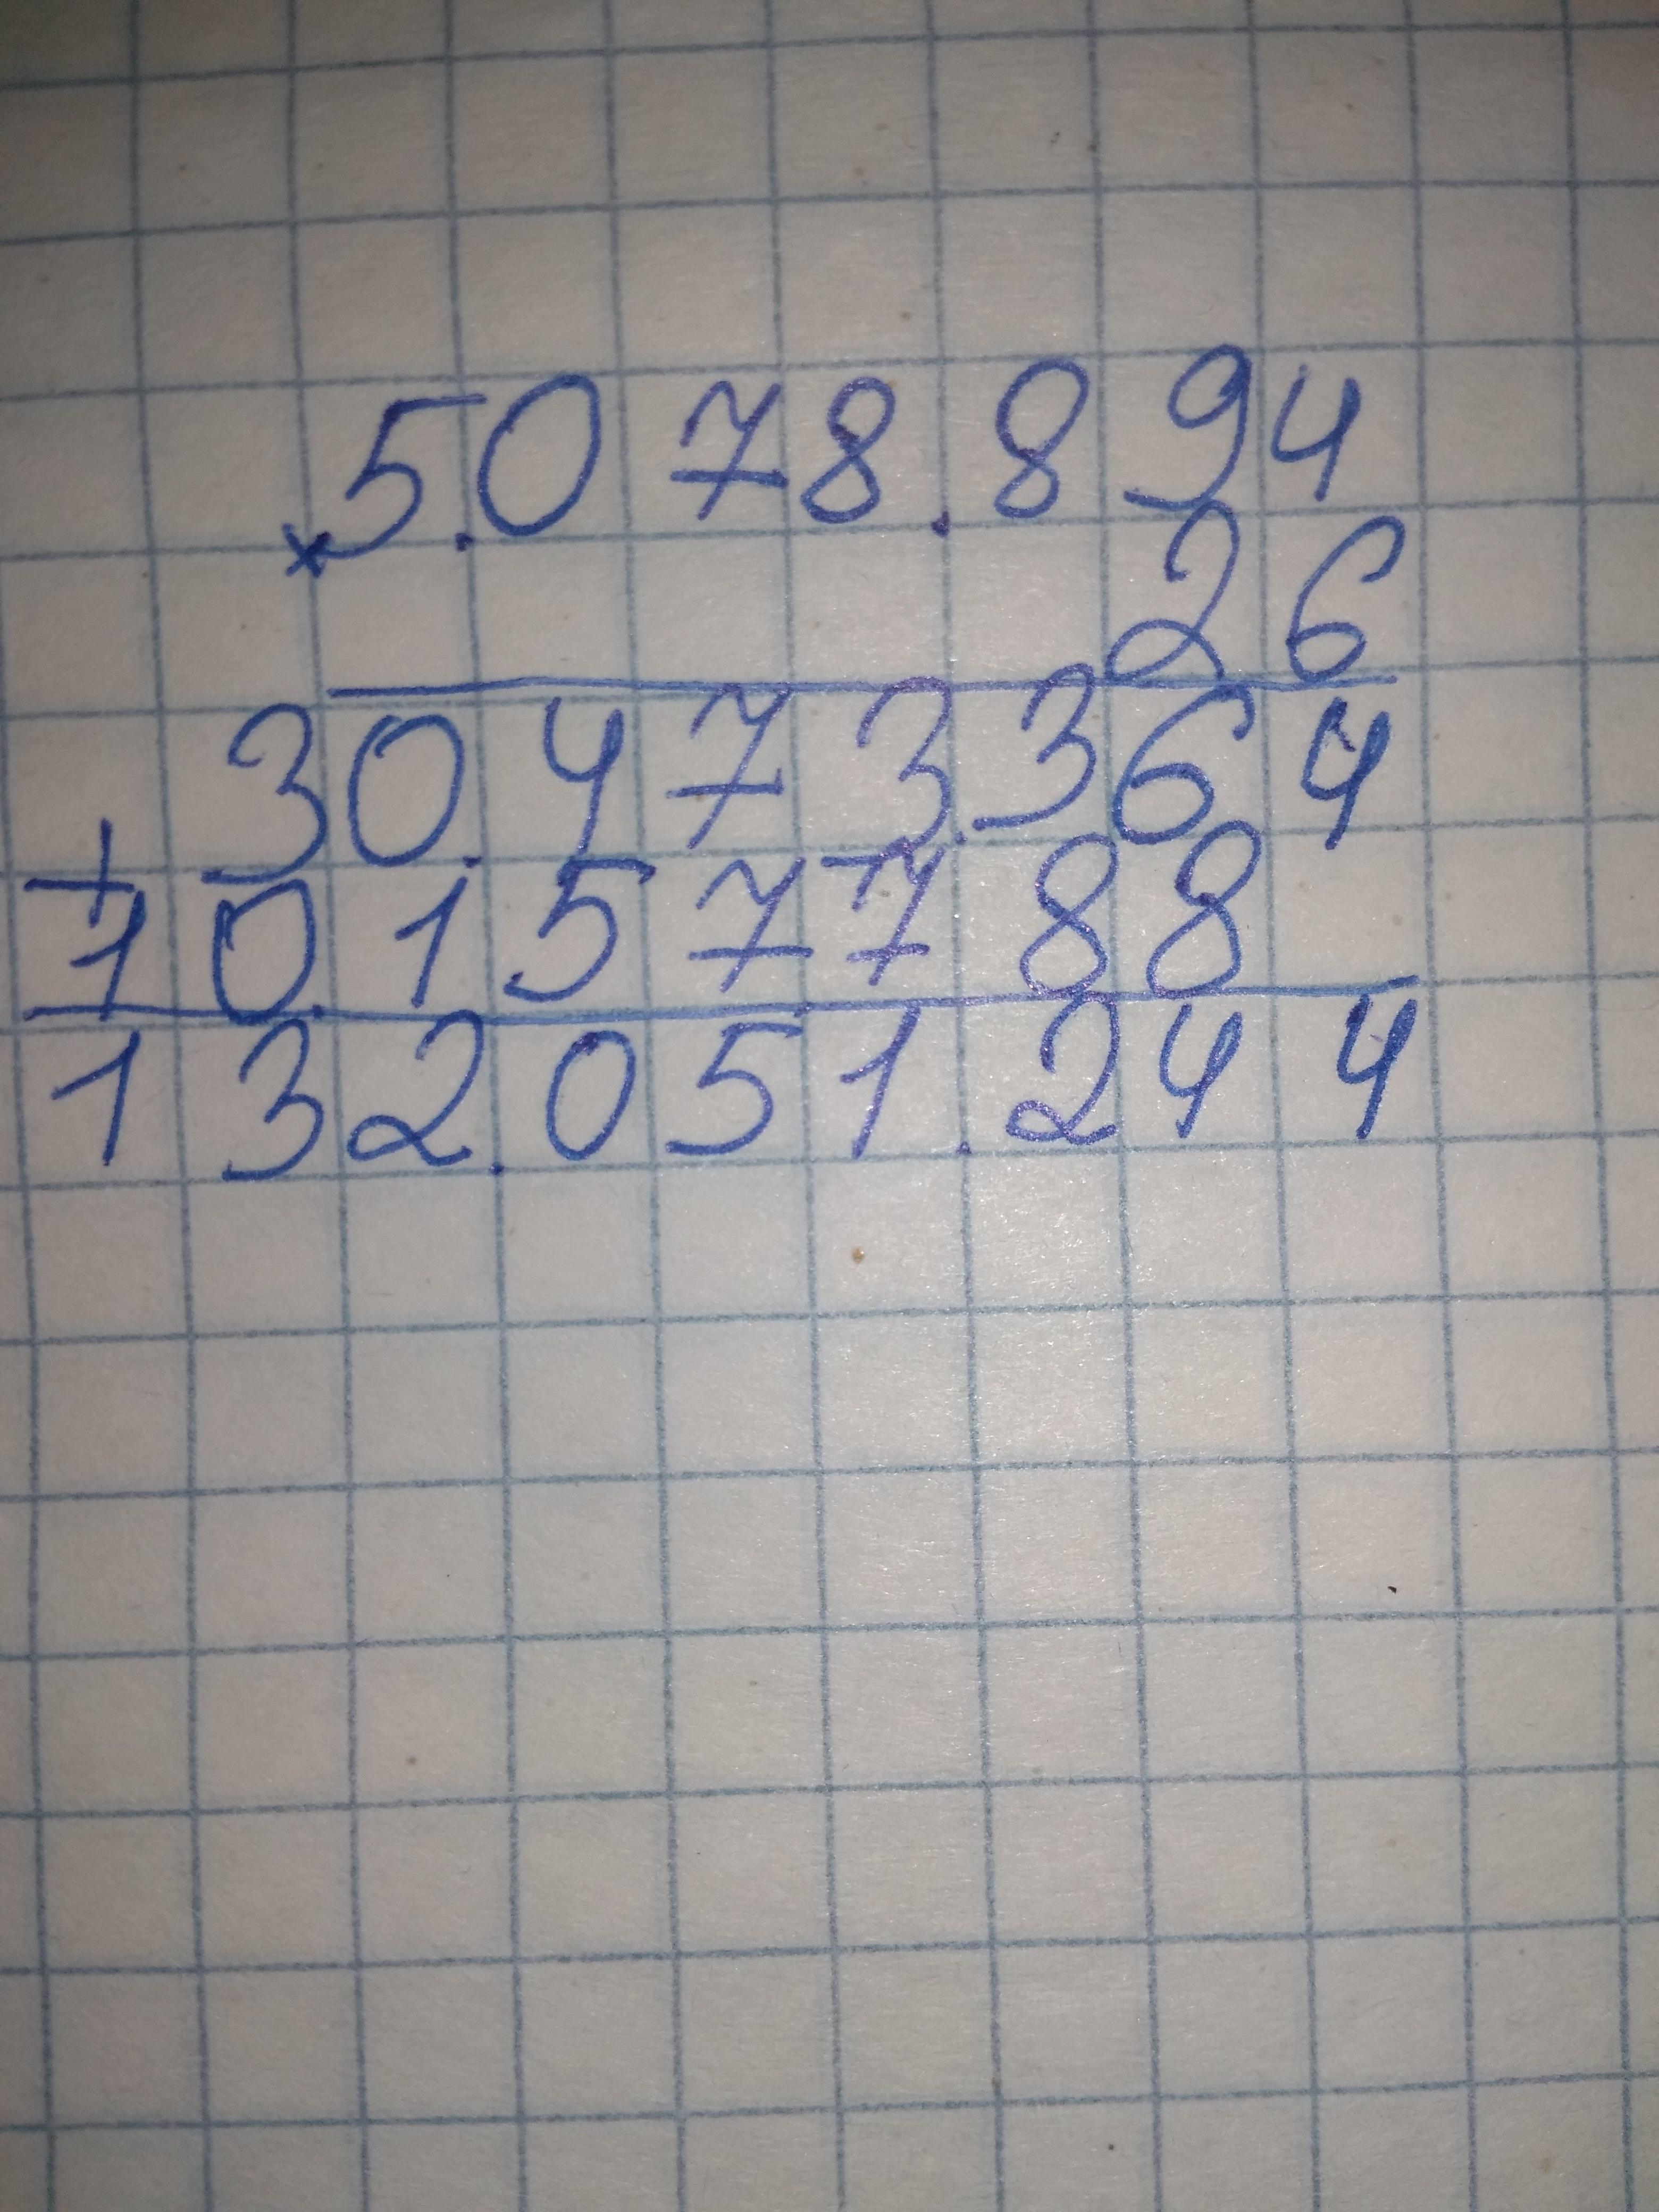 × 5.078.894
26
30.473.364
+ 10.157788
132.051.244